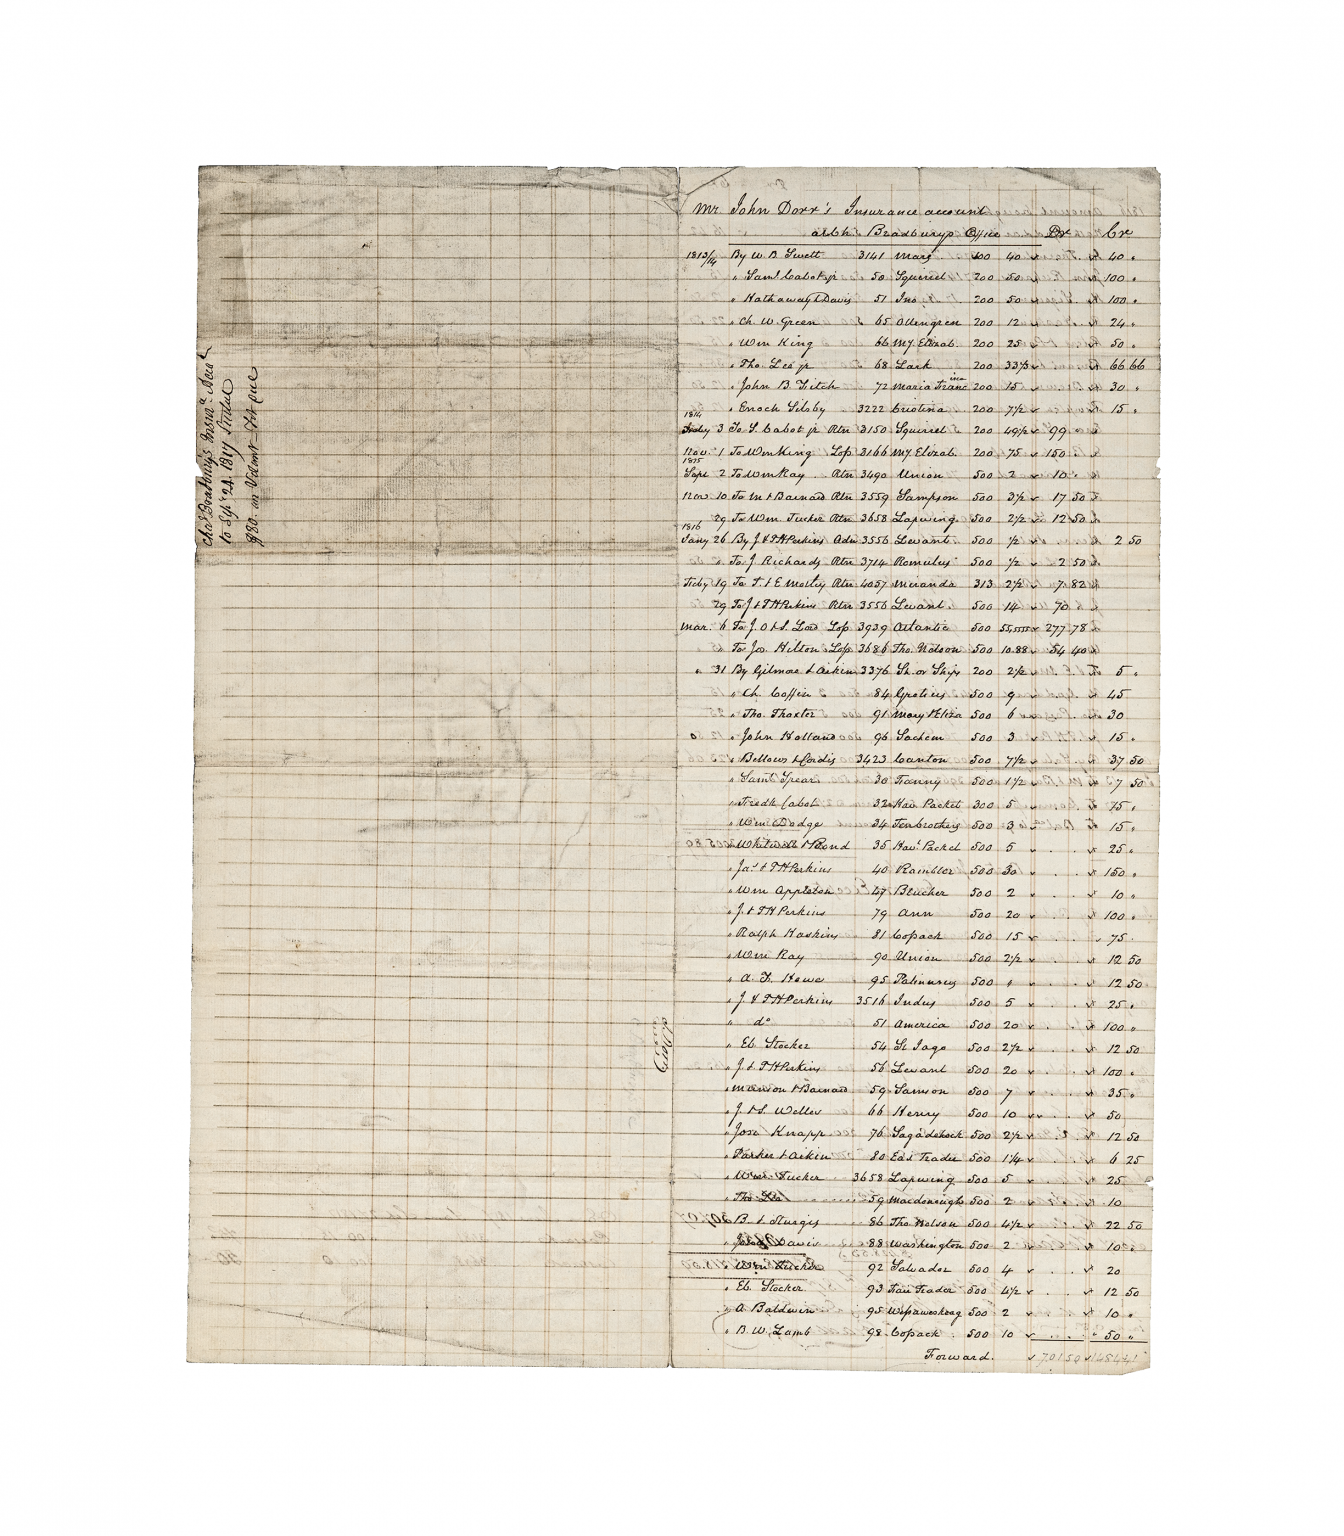 Chas Bradbury's Insura. Acct
to Sepr 24. 1817 Settled
$80. on Volant not due
Mr. John Dorr's Insurance account
at Ch Bradburys Office Dr Cr
1813/14 By W. B. Swett 3141 Mars 100 40 40 "
" Saml Cabot jr 50 Squirrel 200 50 100 "
" Hathaway & Davis 51 Ino 200 50 100 "
" Ch. W. Green 65 Ottengren 200 12 24 "
" Wm King 66 My Elizab. 200 25 50 "
" Tho. Lee jr 68 Lark 200 33⅓ 66 66
" John B. Fitch 72 Maria 200 15 30 "
" Enoch Silsby 3222 Cristina 200 7½ 15 "
1814
July 3 To S. Cabot jr Rtn 3150 Squirrel 200 49½ 99
Nov. 1 To Wm King Lop 3166 My Elizab. 200 75 150
1815
Sept 2 To Wm Ray Rtn 3490 Union 500 2 10
Nov. 10 To M & Barnard Rtn 3559 Sampson 500 3½ 17 50
29 To Wm. Tucker Rtn 3658 Lapwing 500 2½ 12 50
1816
Jany 26 By J & T H Perkins Adn 3556 Levant 500 ½ 2 50
" To J Richards Rtn 3714 Romulus 500 ½ 2 50
Feby 19 To Rtn 4057 Miranda 313 2½ 7.82
29 To J & T H Perkins Rtn 3556 Levant. 500 14 70
Mar. 6 To J. O & S. Lop 3939 Atlantic 500 277 78
" To Jos. Hilton Lop 3686 Tho. Nelson 500 10.88 54 40
" 31 By Gilmore & Aikin 3376 Sh. or Ships 200 2½ 5 "
" Ch. Coffin 84 Grotius 500 9 45
" Tho. Thaxter 91 Mary & Eliza 500 6 30
" John Holland 96 Sachem 500 3 15 "
" Bellows & Cordis 3423 Canton 500 7½ 37 50
" Saml Spear 30 Fanny 500 1½ 7 50
" Fredk Cabot 32 Hav. Packet 300 5 15 "
" Wm Dodge 34 Tenbrothers 500 3 15 "
" Whitwell & Bond 35 Hav. Packet 500 5 25 "
" Jas & T H Perkins 40 Rambler 500 30 150 "
" Wm Appleton 47 Blucher 500 2 10 "
" J. & T H Perkins 79 Ann 500 20 100 "
" Ralph Haskins 81 Copack 500 15 75
" Wm Ray 90 Union 500 2½ 12 50
" A. F. Howe 95 Palinurus 500 " 12 50
" J. & T H Perkins 3516 Indus 500 5 25 "
" do 51 America 500 20 100 "
" Eb Stocker 54 St Iago 500 2½ 12 50
" J. & T H Perkins 56 Levant 500 20 100 "
" Munson & Barnard 59 Samson 500 7 35 "
" J. & S. Welles 66 Henry 500 10 50
" Josi Knapp 76 Sagadahock 500 2½ 12 50
" Parker & Aikin 80 Eas Trader 500 1¼ 6 25
" Wm Tucker 3658 Lapwing 500 5 25
" Tho. Lee 59 Macdonough 500 2 10
" R. & Sturgis 86 Tho Nelson 500 4½ 22 50
" Davis 88 Washington 500 2 10 "
" Wm Tucker 92 Salvador 500 4 20
" Eb Stocker 93 Trader 500 4½ 12 50
" A. Baldwin 95 500 2 10 "
" B. W. Lamb 98 Copack 500 10 50 "
Forward. 701 50 1484 41